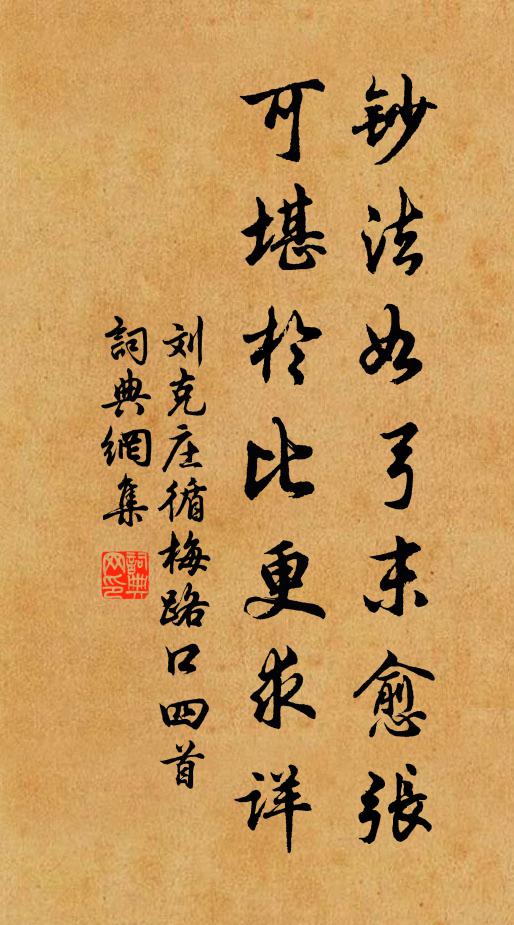 鈔法如弓末愈張
可堪於比更求詳
刘克庄循梅路口四首
詞典網集
詞典
网印